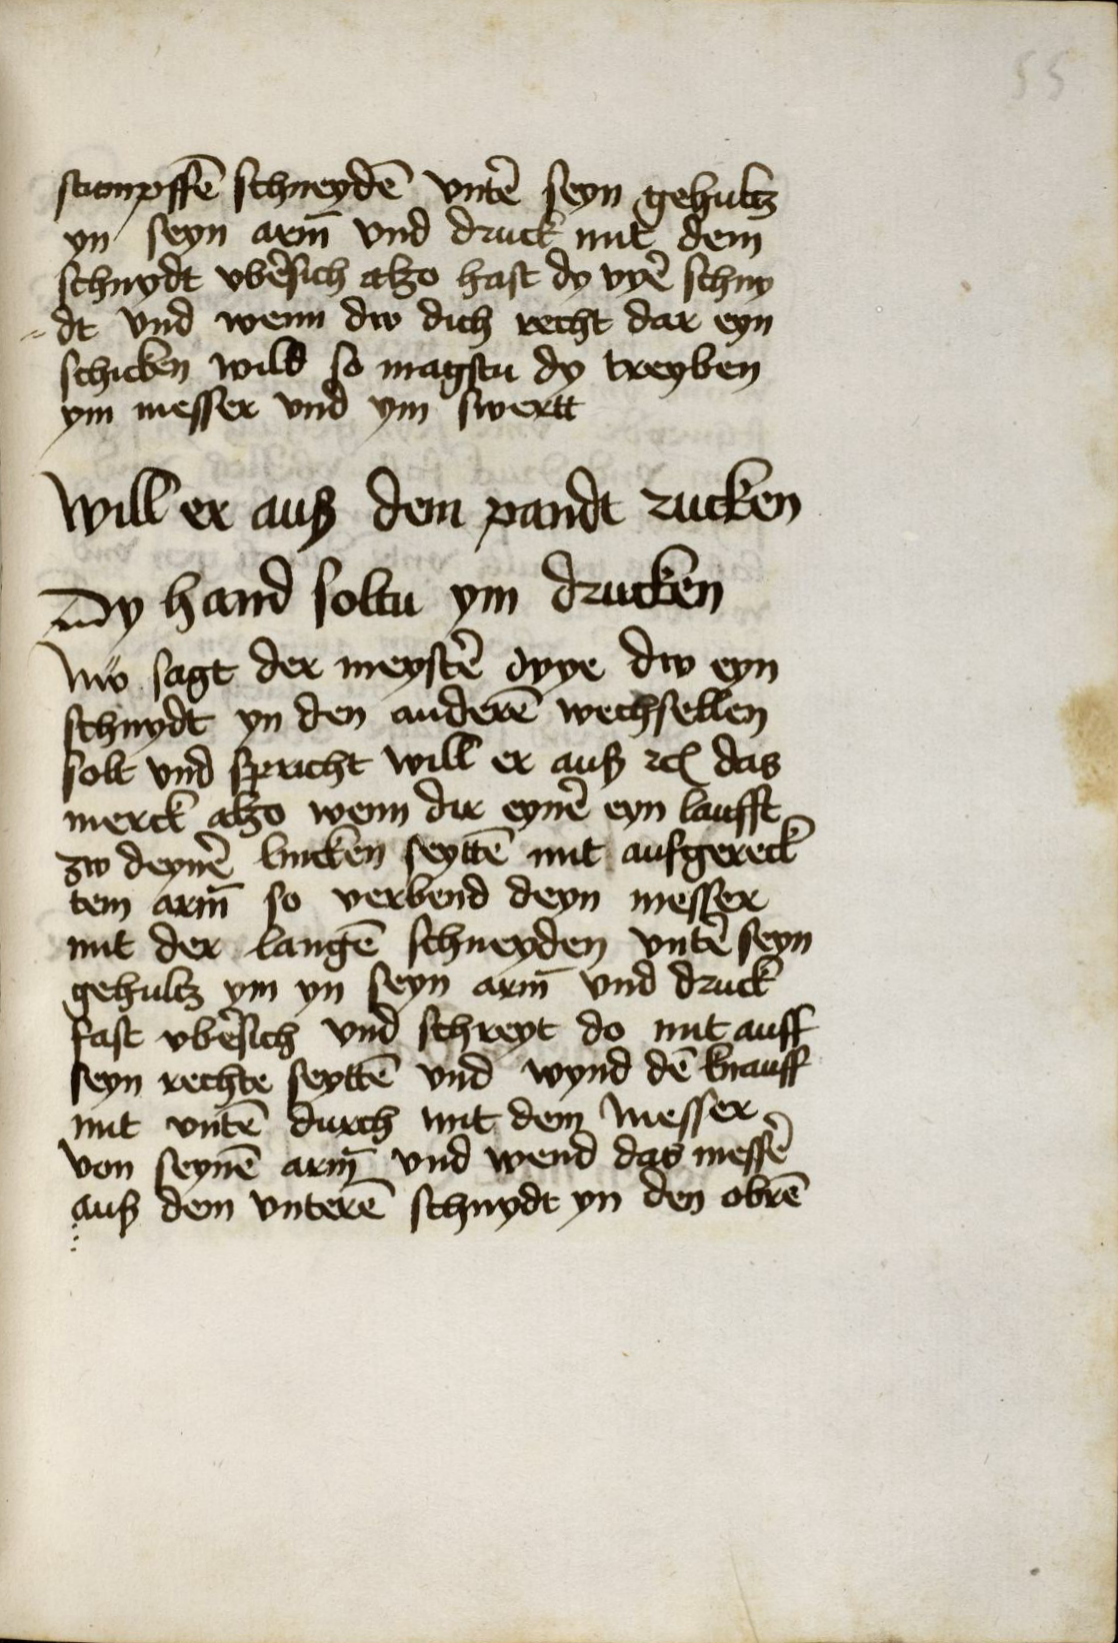 55
stumpffē schneydē vntē seyn gehultz
yn seyn arm̄ vnd druck mit dem
schnydt vbēsich alzo hast dy vyē schny
dt vnd wenn dw dich recht dar eyn
schicken wild so magstu dy treyben
ym messer vnd ym swertt
Will er auß dem pandt rucken
Dy hand soltu ym drucken
Nw sagt der meystē wye dw eyn
schnydt yn den anderē wechsellen
solt vnd spricht will er auß ꝛc das
merck alzo wenn dir eynē eyn laufft
zw deynē lincken seyttē mit aufgereck
tem arm̄ so verbend deyn messer
mit der langē schneyden vntē seyn
gehultz ym yn seyn arm̄ vnd druck
fast vbēsich vnd schreyt do mit auff
seyn rechte seyttē vnd wynd dē knauff
mit vntē durch mit dem messer
von seynē arm̄ vnd wend das messē
auß dem vnterē schnydt yn den obrē